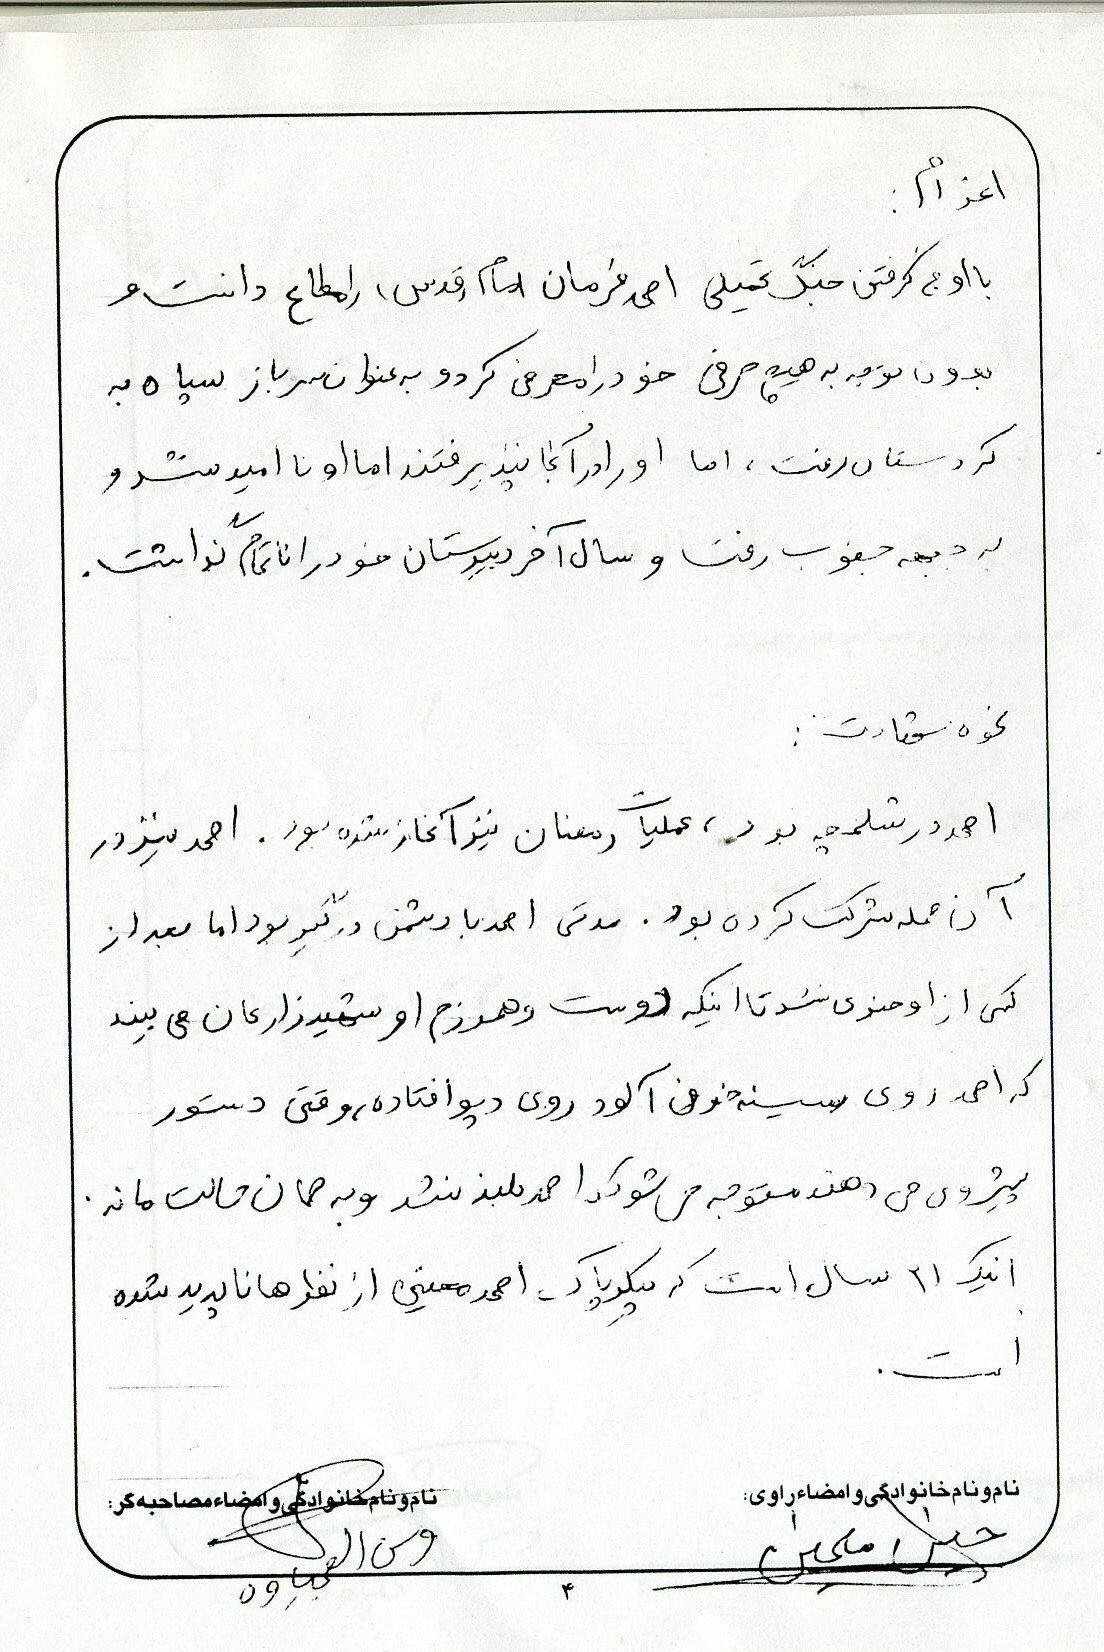 اعزام :
با اوج گرفتن جنگ تحمیلی احمد فرمان امام (قدس) را مطاع دانست و
بدون توجه به هیچ حرفی خود را معرفی کرد و به عنوان سرباز سپاه به
کردستان رفت ، اما او را در آنجا نپذیرفتند اما او نا امید نشد و
به جبهه جنوب رفت و سال آخر دبیرستان خود را ناتمام گذاشت .
نحوه شهادت :
احمد در شلمچه بود ، عملیات رمضان نیز آغاز شده بود . احمد نیز در
آن حمله شرکت کرده بود . مدتی احمد با دشمن درگیر بود اما بعد از
کمی از او خبری نشد تا اینکه دوست و همرزم او شهید زارعان می بیند
که احمد روی سینه خونی آلود روی دپو افتاده ، وقتی دستور
پیشروی می دهند متوجه می شود که احمد بلند نشد و به همان حالت مانده .
اینک ۲۱ سال است که پیکر پاک احمد از نظرها ناپدید شده
است .
نام و نام خانوادگی و امضاء راوی:
نام و نام خانوادگی و امضاء مصاحبه گر:
۴